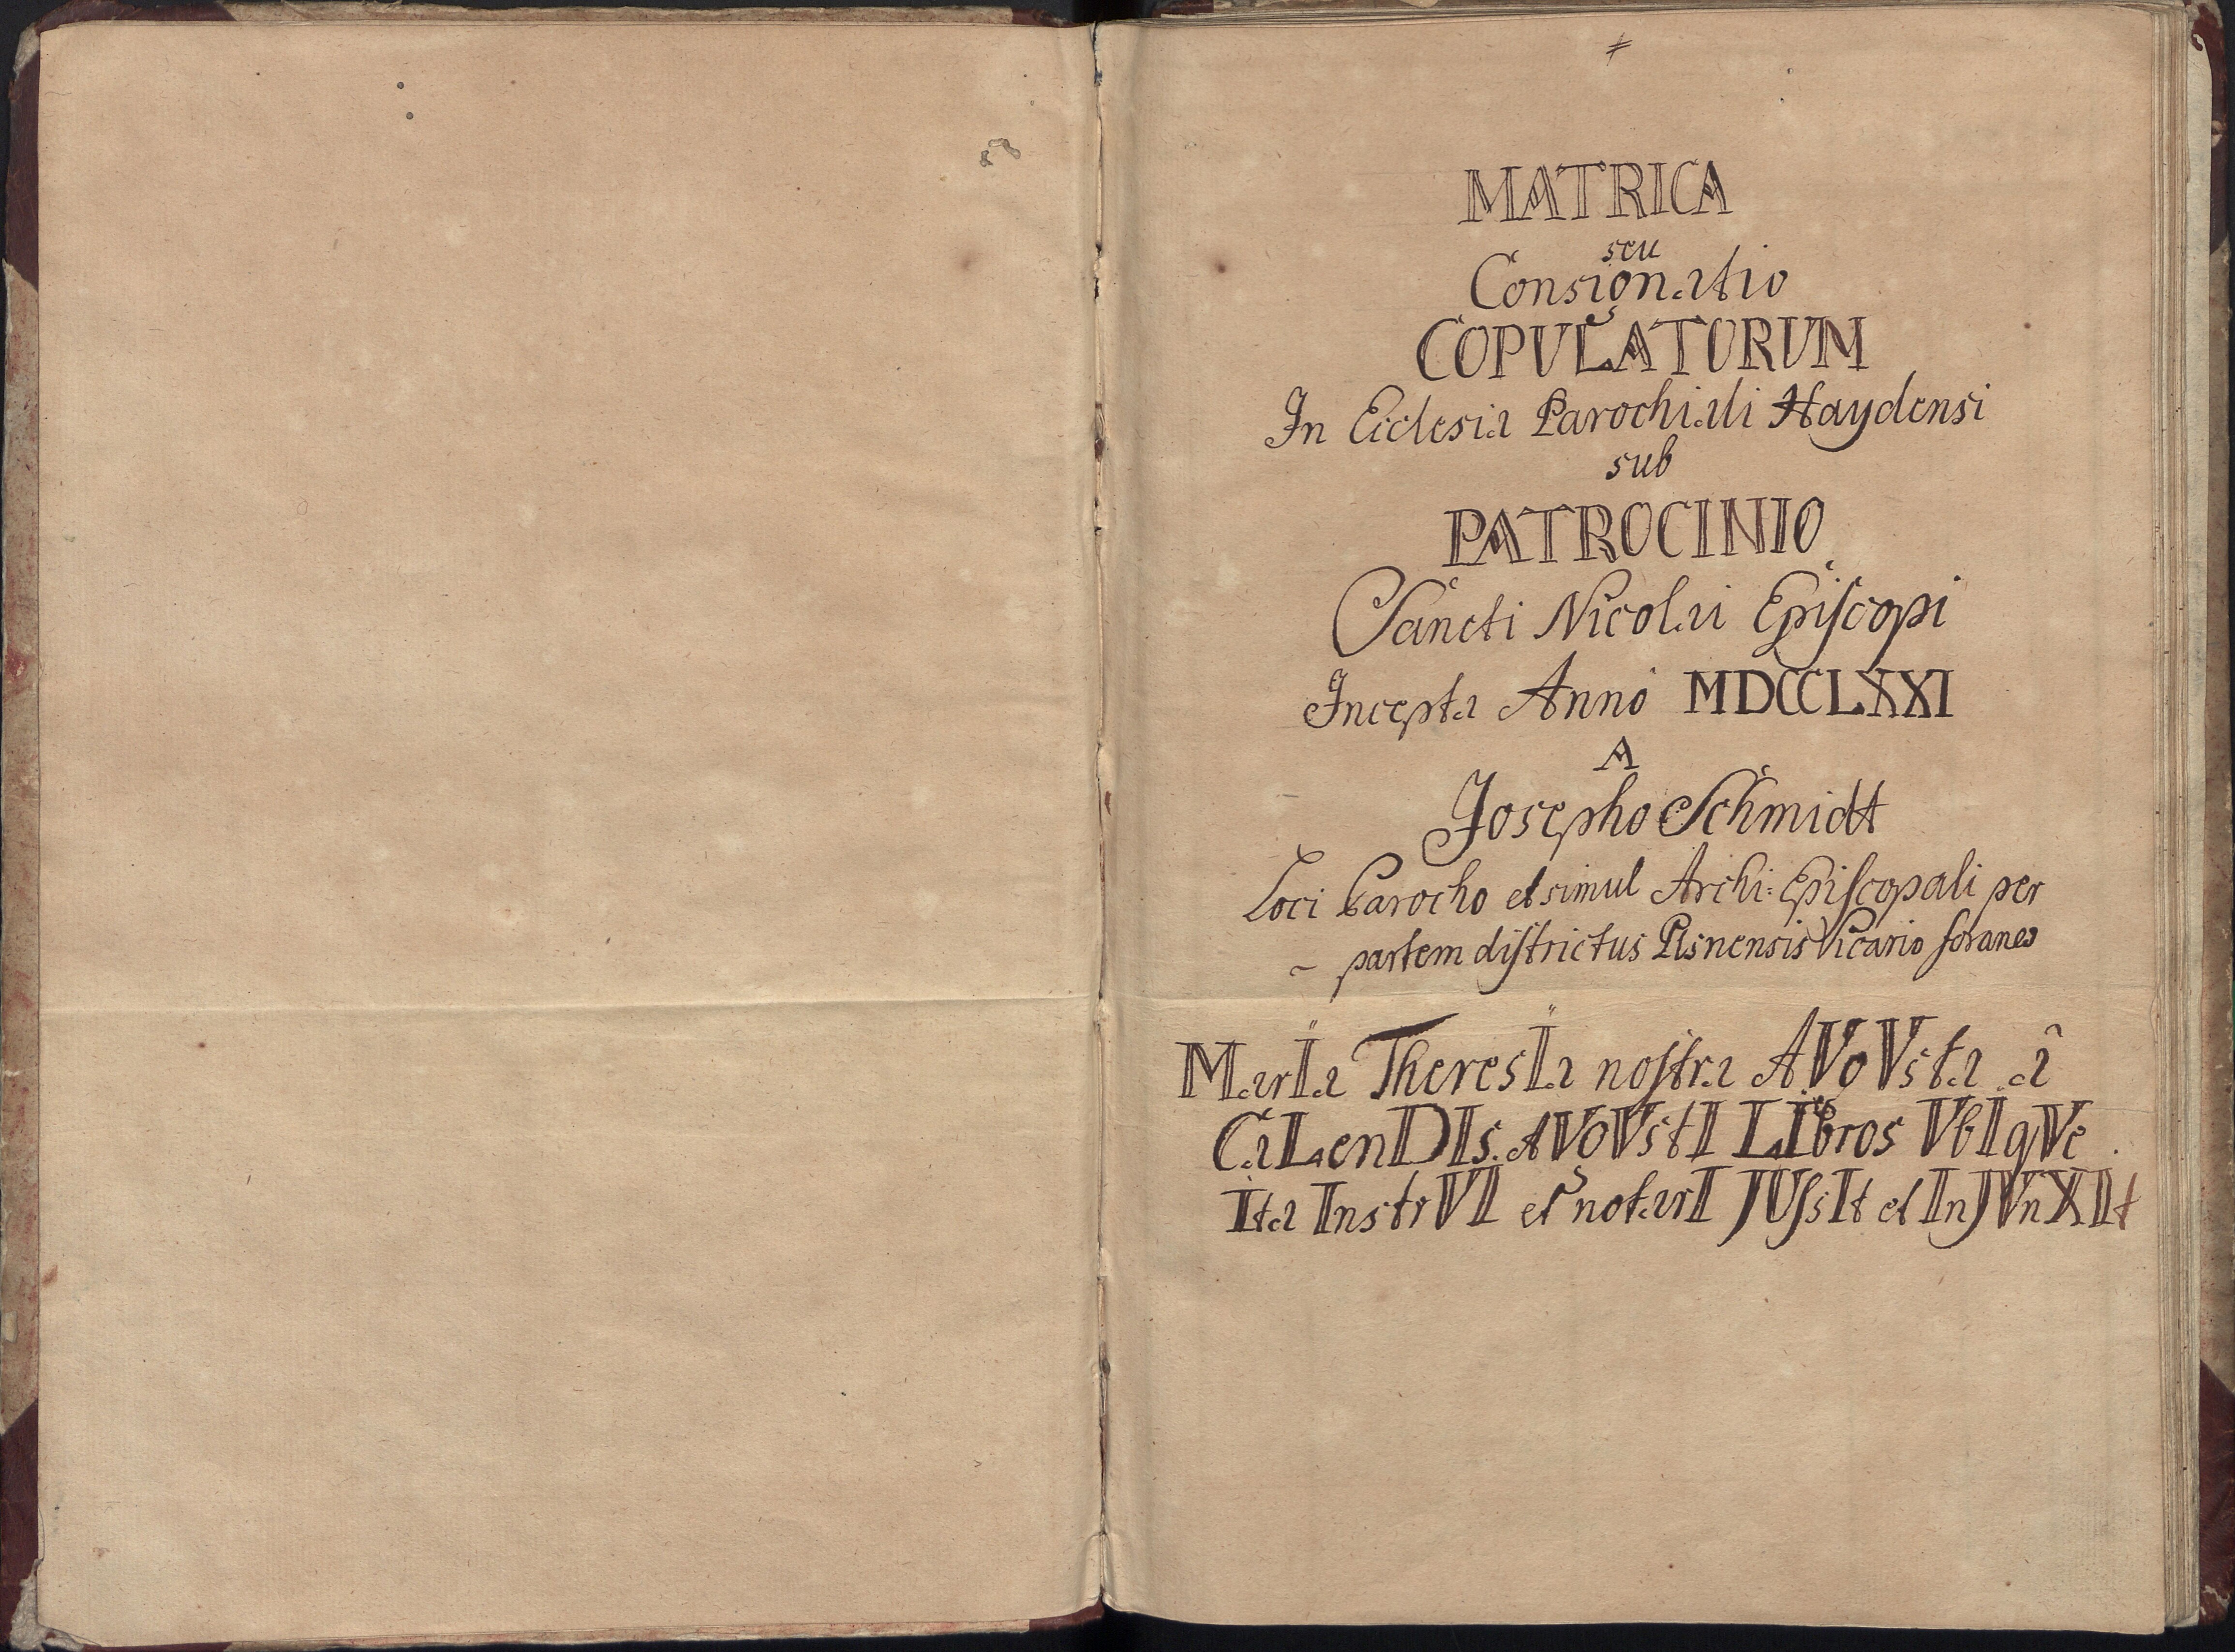 MATRICA
seu
Consignatio
COPVLATORVM
In Ecclesia Parochiali Haydensi
sub
PATROCINIO
Sancti Nicolai Episcopi
Incepta Anno MDCCLXXI
A
Josepho Schmidt
Loci Parocho et simul Archi: Episcopali per
partem districtus Plsnensis Vicario foraneo
MarIa TheresIa nostra AVgVsta â
CaLenDIs AVgVstI LIbros VbIqVe
Ita InstrVI et notarI JVssIt et InJVnXIt